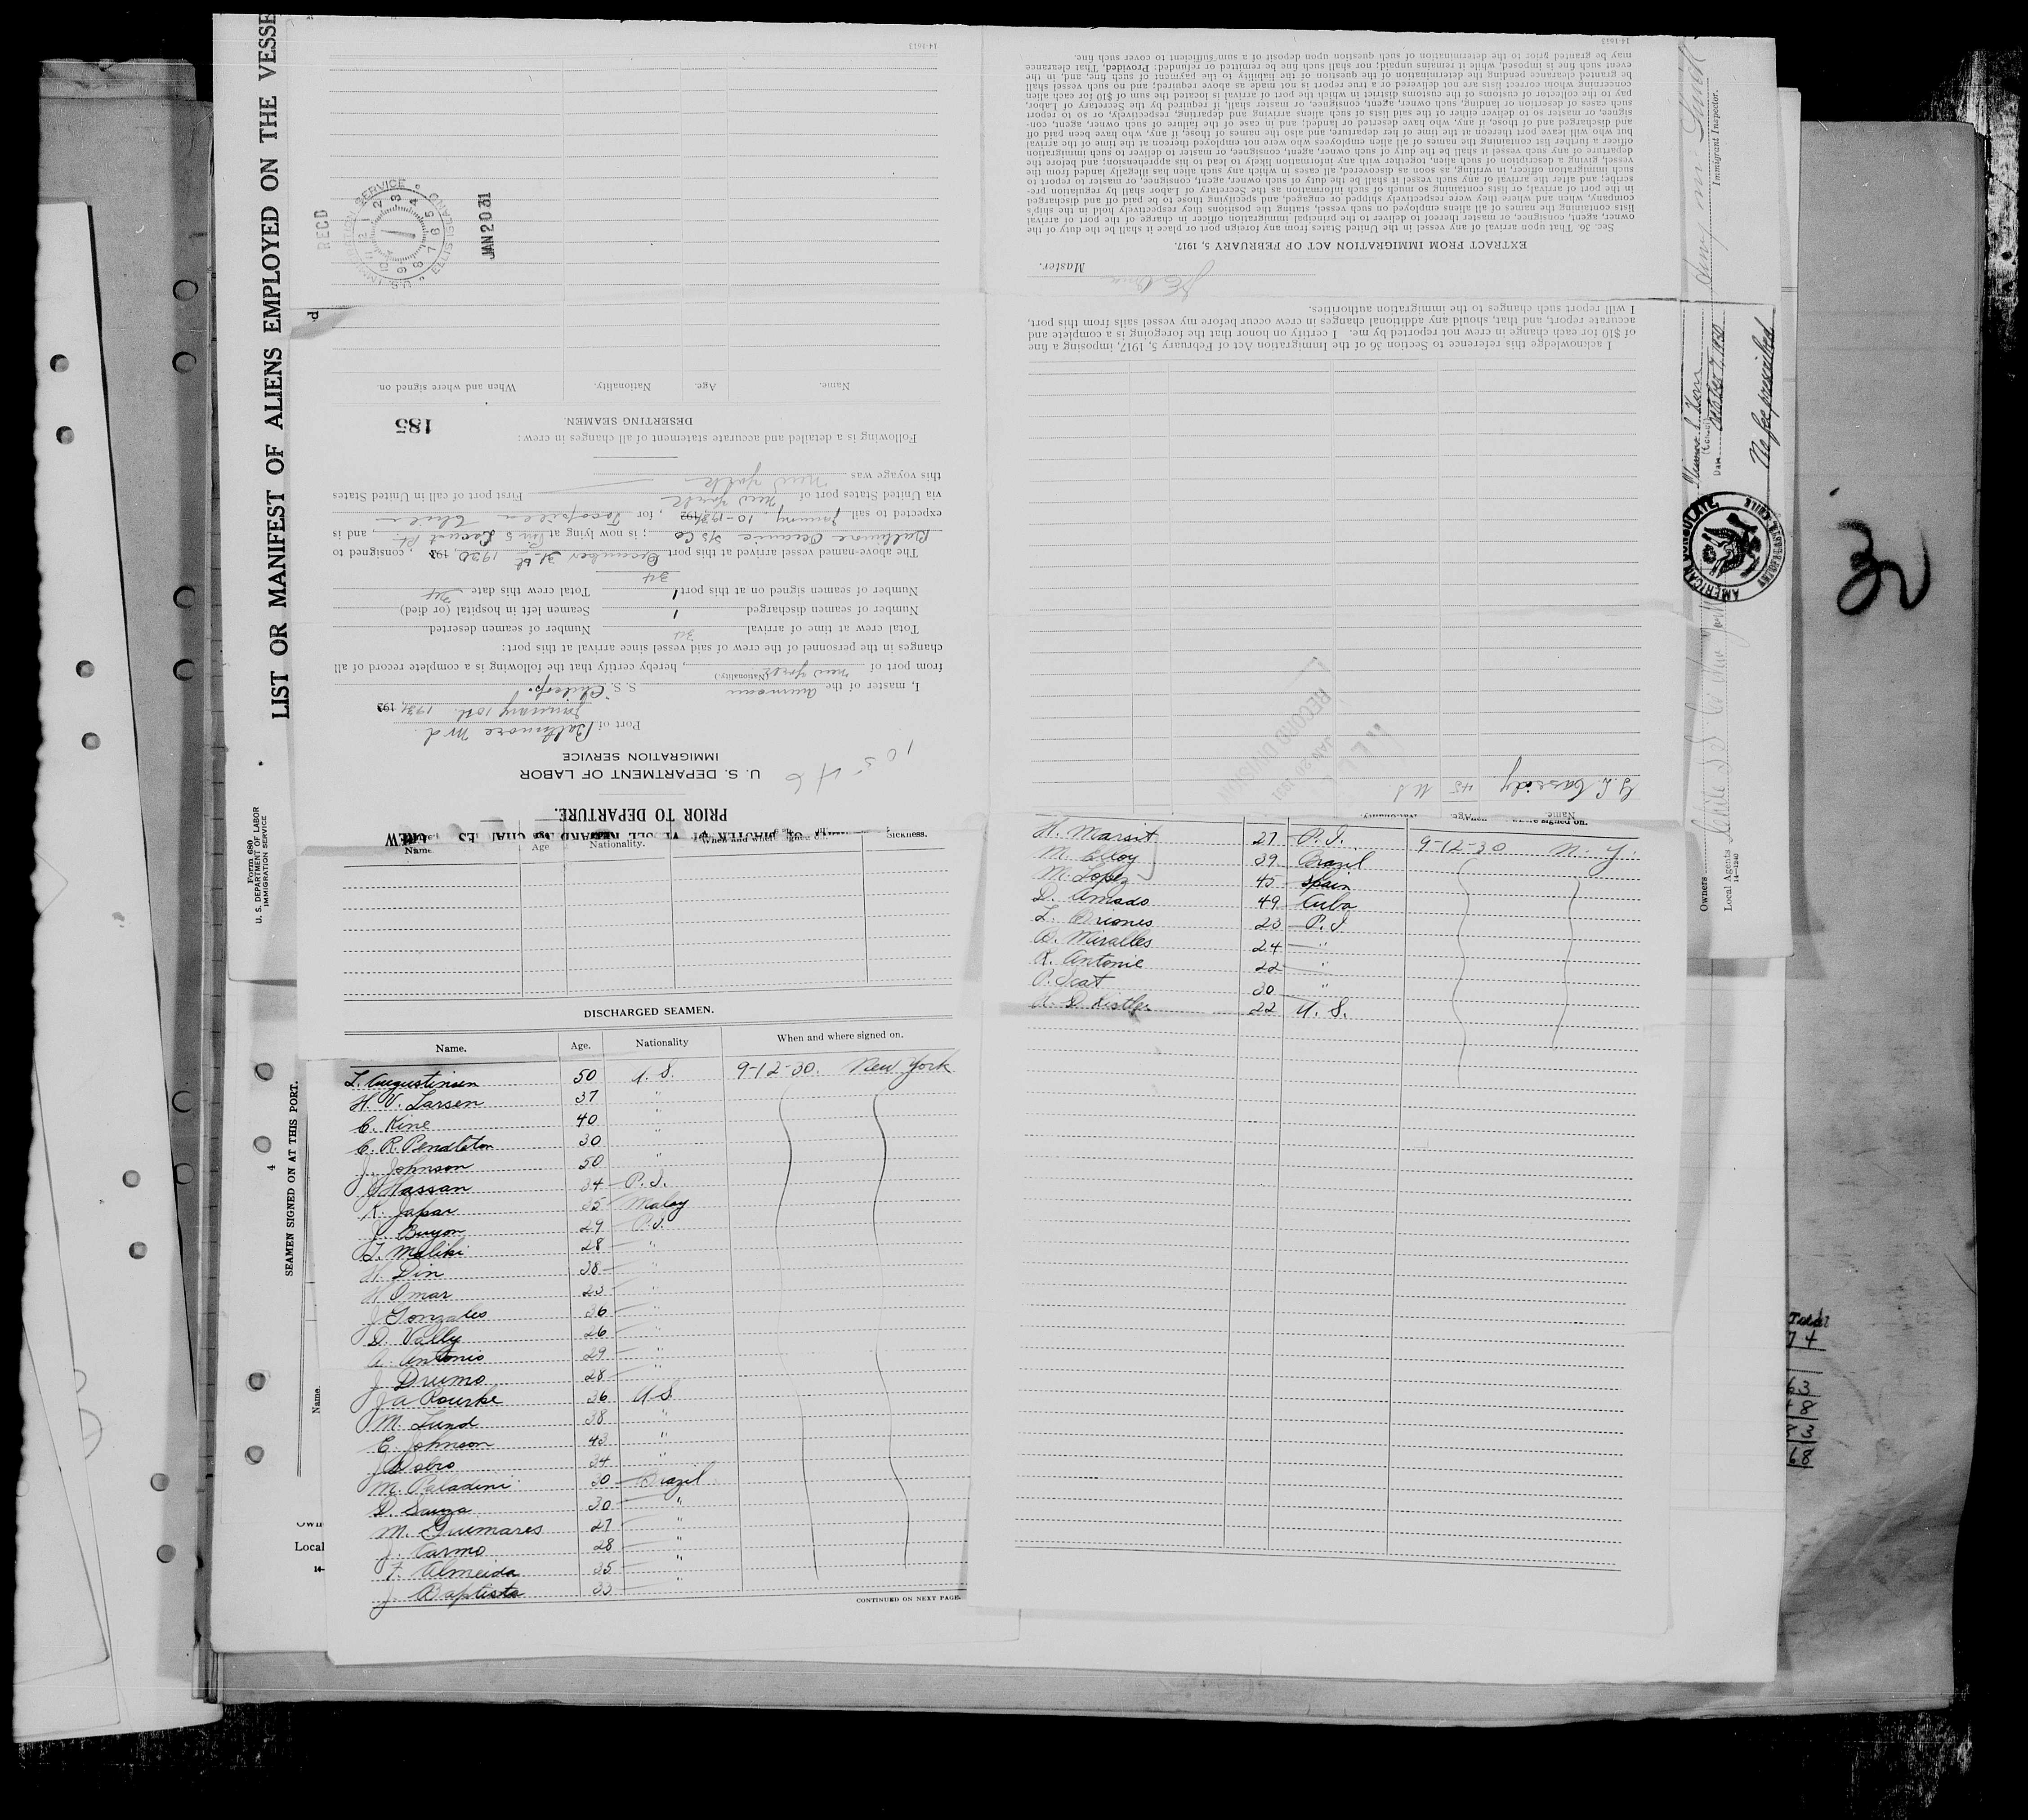 LIST OR MANIFEST OF ALIENS EMPLOYED ON THE VESSE
Form 680
U. S. DEPARTMENT OF LABOR
IMMIGRATION SERVICE
4
SEAMEN SIGNED ON AT THIS PORT.
Name.
Local
14-
PRIOR TO DEPARTURE.
U. S. DEPARTMENT OF LABOR
IMMIGRATION SERVICE
Port of Baltimore Md.
January 10th 1931, 192
I, master of the American S. S. "Chilcop"
(Nationality.)
from port of New York, hereby certify that the following is a complete record of all
changes in the personnel of the crew of said vessel since arrival at this port:
Total crew at time of arrival 34 Number of seamen deserted
Number of seamen discharged 1 Seamen left in hospital (or died)
Number of seamen signed on at this port 1 Total crew this date 34
34
The above-named vessel arrived at this port December 31st 1930, 192 , consigned to
Baltimore Oceanic S/S Co ; is now lying at Pier 5 Locust Pt. , and is
expected to sail January 10-1931 192 , for Tocopilla Chile
via United States port of New York First port of call in United States
this voyage was New York
Following is a detailed and accurate statement of all changes in crew:
DESERTING SEAMEN.
185
Name. Age. Nationality. When and where signed on.
RECD
U.S. IMMIGRATION SERVICE
ELLIS ISLAND
JAN 20 31
14-1613
Name Age Nationality. When and where signed on Sickness.
DISCHARGED SEAMEN.
Name. Age. Nationality When and where signed on.
L. Augustinsen 50 U. S. 9-12-30. New York
H. V. Larsen 37 "
C. Kine 40 "
C. R. Pendleton 30 "
J. Johnson 50 "
J Hassan 34 P. I.
K. Japar 35 Malay
J. Buyon 27 P. I.
I. Meliki 28 "
H. Din 38 "
H Omar 23 "
J Gonzales 36 "
D. Vally 26 "
A. Antonio 29 "
J Drumo 28 "
J A Rourke 36 U. S.
M. Lund 38 "
C Johnson 43 "
34 "
M. Paladini 30 Brazil
D. Souza 30 "
M. Guimares 27 "
J. Carmo 28 "
F. Almeida 35 "
J. Baptista 33 "
CONTINUED ON NEXT PAGE.
H. Marsit 27 P. I. 9-12-30 N. Y.
M. Eleoy 39 Brazil
M. Lopez 45 Spain
D. Amado 49 Cuba
L. Briones 23 P. I
B. Miralles 24 "
R. Antonie 22 "
P. Seat 30 "
H. D. Kistler 22 U. S.
G L Cassidy 45 U S.
RECORD DIVISION
JAN 20 1931
I acknowledge this reference to Section 36 of the Immigration Act of February 5, 1917, imposing a fine
of $10 for each change in crew not reported by me. I certify on honor that the foregoing is a complete and
accurate report, and that, should any additional changes in crew occur before my vessel sails from this port,
I will report such changes to the immigration authorities.
Master.
EXTRACT FROM IMMIGRATION ACT OF FEBRUARY 5, 1917.
Sec. 36. That upon arrival of any vessel in the United States from any foreign port or place it shall be the duty of the
owner, agent, consignee, or master thereof to deliver to the principal immigration officer in charge of the port of arrival
lists containing the names of all aliens employed on such vessel, stating the positions they respectively hold in the ship's
company, when and where they were respectively shipped or engaged, and specifying those to be paid off and discharged
in the port of arrival; or lists containing so much of such information as the Secretary of Labor shall by regulation pre-
scribe; and after the arrival of any such vessel it shall be the duty of such owner, agent, consignee, or master to report to
such immigration officer, in writing, as soon as discovered, all cases in which any such alien has illegally landed from the
vessel, giving a description of such alien, together with any information likely to lead to his apprehension; and before the
departure of any such vessel it shall be the duty of such owner, agent, consignee, or master to deliver to such immigration
officer a further list containing the names of all alien employees who were not employed thereon at the time of the arrival
but who will leave port thereon at the time of her departure, and also the names of those, if any, who have been paid off
and discharged and of those, if any, who have deserted or landed; and in case of the failure of such owner, agent, con-
signee, or master so to deliver either of the said lists of such aliens arriving and departing, respectively, or so to report
such cases of desertion or landing, such owner, agent, consignee, or master shall, if required by the Secretary of Labor,
pay to the collector of customs of the customs district in which the port of arrival is located the sum of $10 for each alien
concerning whom correct lists are not delivered or a true report is not made as above required; and no such vessel shall
be granted clearance pending the determination of the question of the liability to the payment of such fine, and, in the
event such fine is imposed, while it remains unpaid; nor shall such fine be remitted or refunded: Provided, That clearance
may be granted prior to the determination of such question upon deposit of a sum sufficient to cover such fine.
14-1613
Immigrant Inspector.
Date October 7, 1930
No fee prescribed
AMERICAN CONSULATE
Owners
Local Agents
14-1240
30
Total
74
63
68